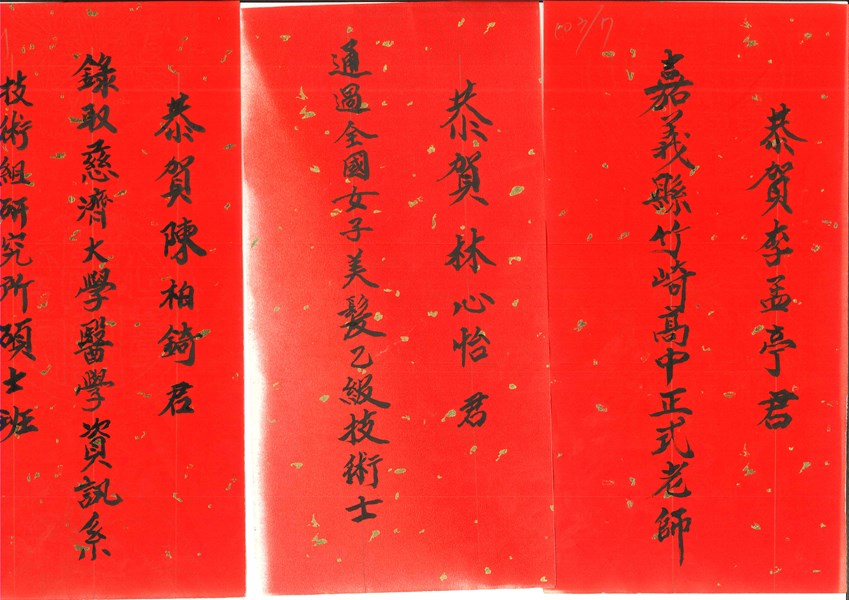 恭賀李孟亭君
嘉義縣竹崎高中正式老師
恭賀林心怡君
通過全國女子美髮乙級技術士
恭賀陳柏錡君
錄取慈濟大學醫學資訊系
技術組研究所碩士班